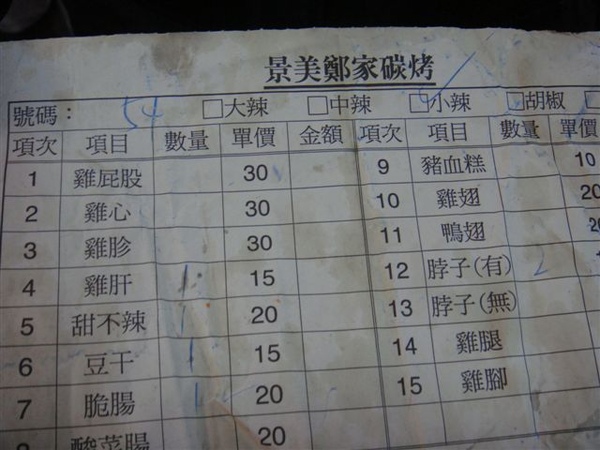 景美鄭家碳烤
號碼： 54 □大辣 □中辣 □小辣 □胡椒 □
項次 項目 數量 單價 金額 項次 項目 數量 單價
1 雞屁股 30 9 豬血糕 10
2 雞心 30 10 雞翅 20
3 雞胗 30 11 鴨翅
4 雞肝 1 15 12 脖子(有) 2
5 甜不辣 1 20 13 脖子(無)
6 豆干 1 15 14 雞腿
7 脆腸 1 20 15 雞腳
酸菜腸 20